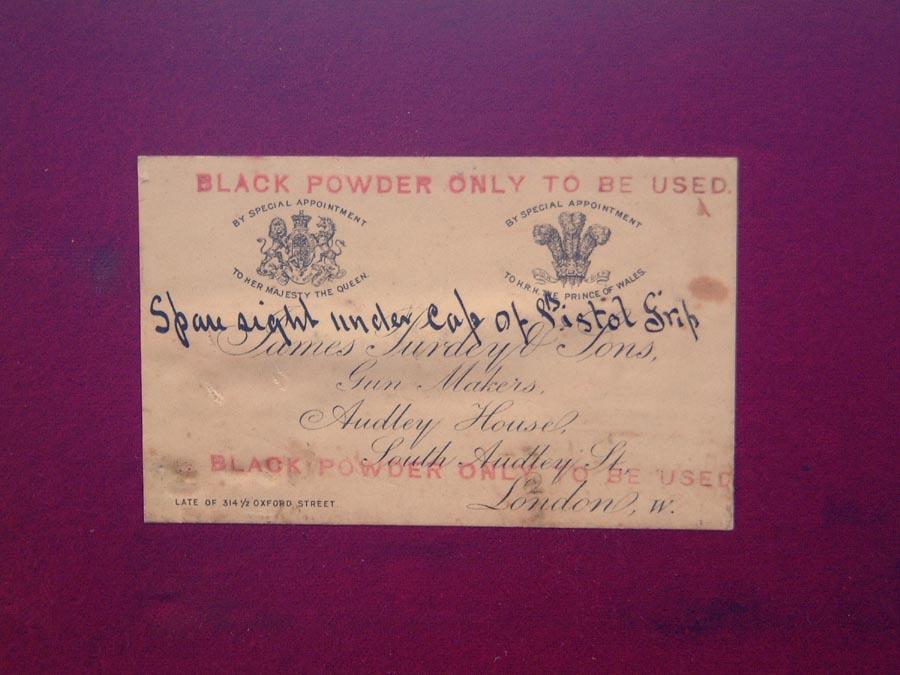 BLACK POWDER ONLY TO BE USED.
BY SPECIAL APPOINTMENT
TO HER MAJESTY THE QUEEN.
BY SPECIAL APPOINTMENT
TO H.R.H. THE PRINCE OF WALES.
Spare sight under Cap of Pistol Grip
James Purdey & Sons,
Gun Makers,
Audley House,
South Audley St.
BLACK POWDER ONLY TO BE USED
LATE OF 314½ OXFORD STREET.
London, W.